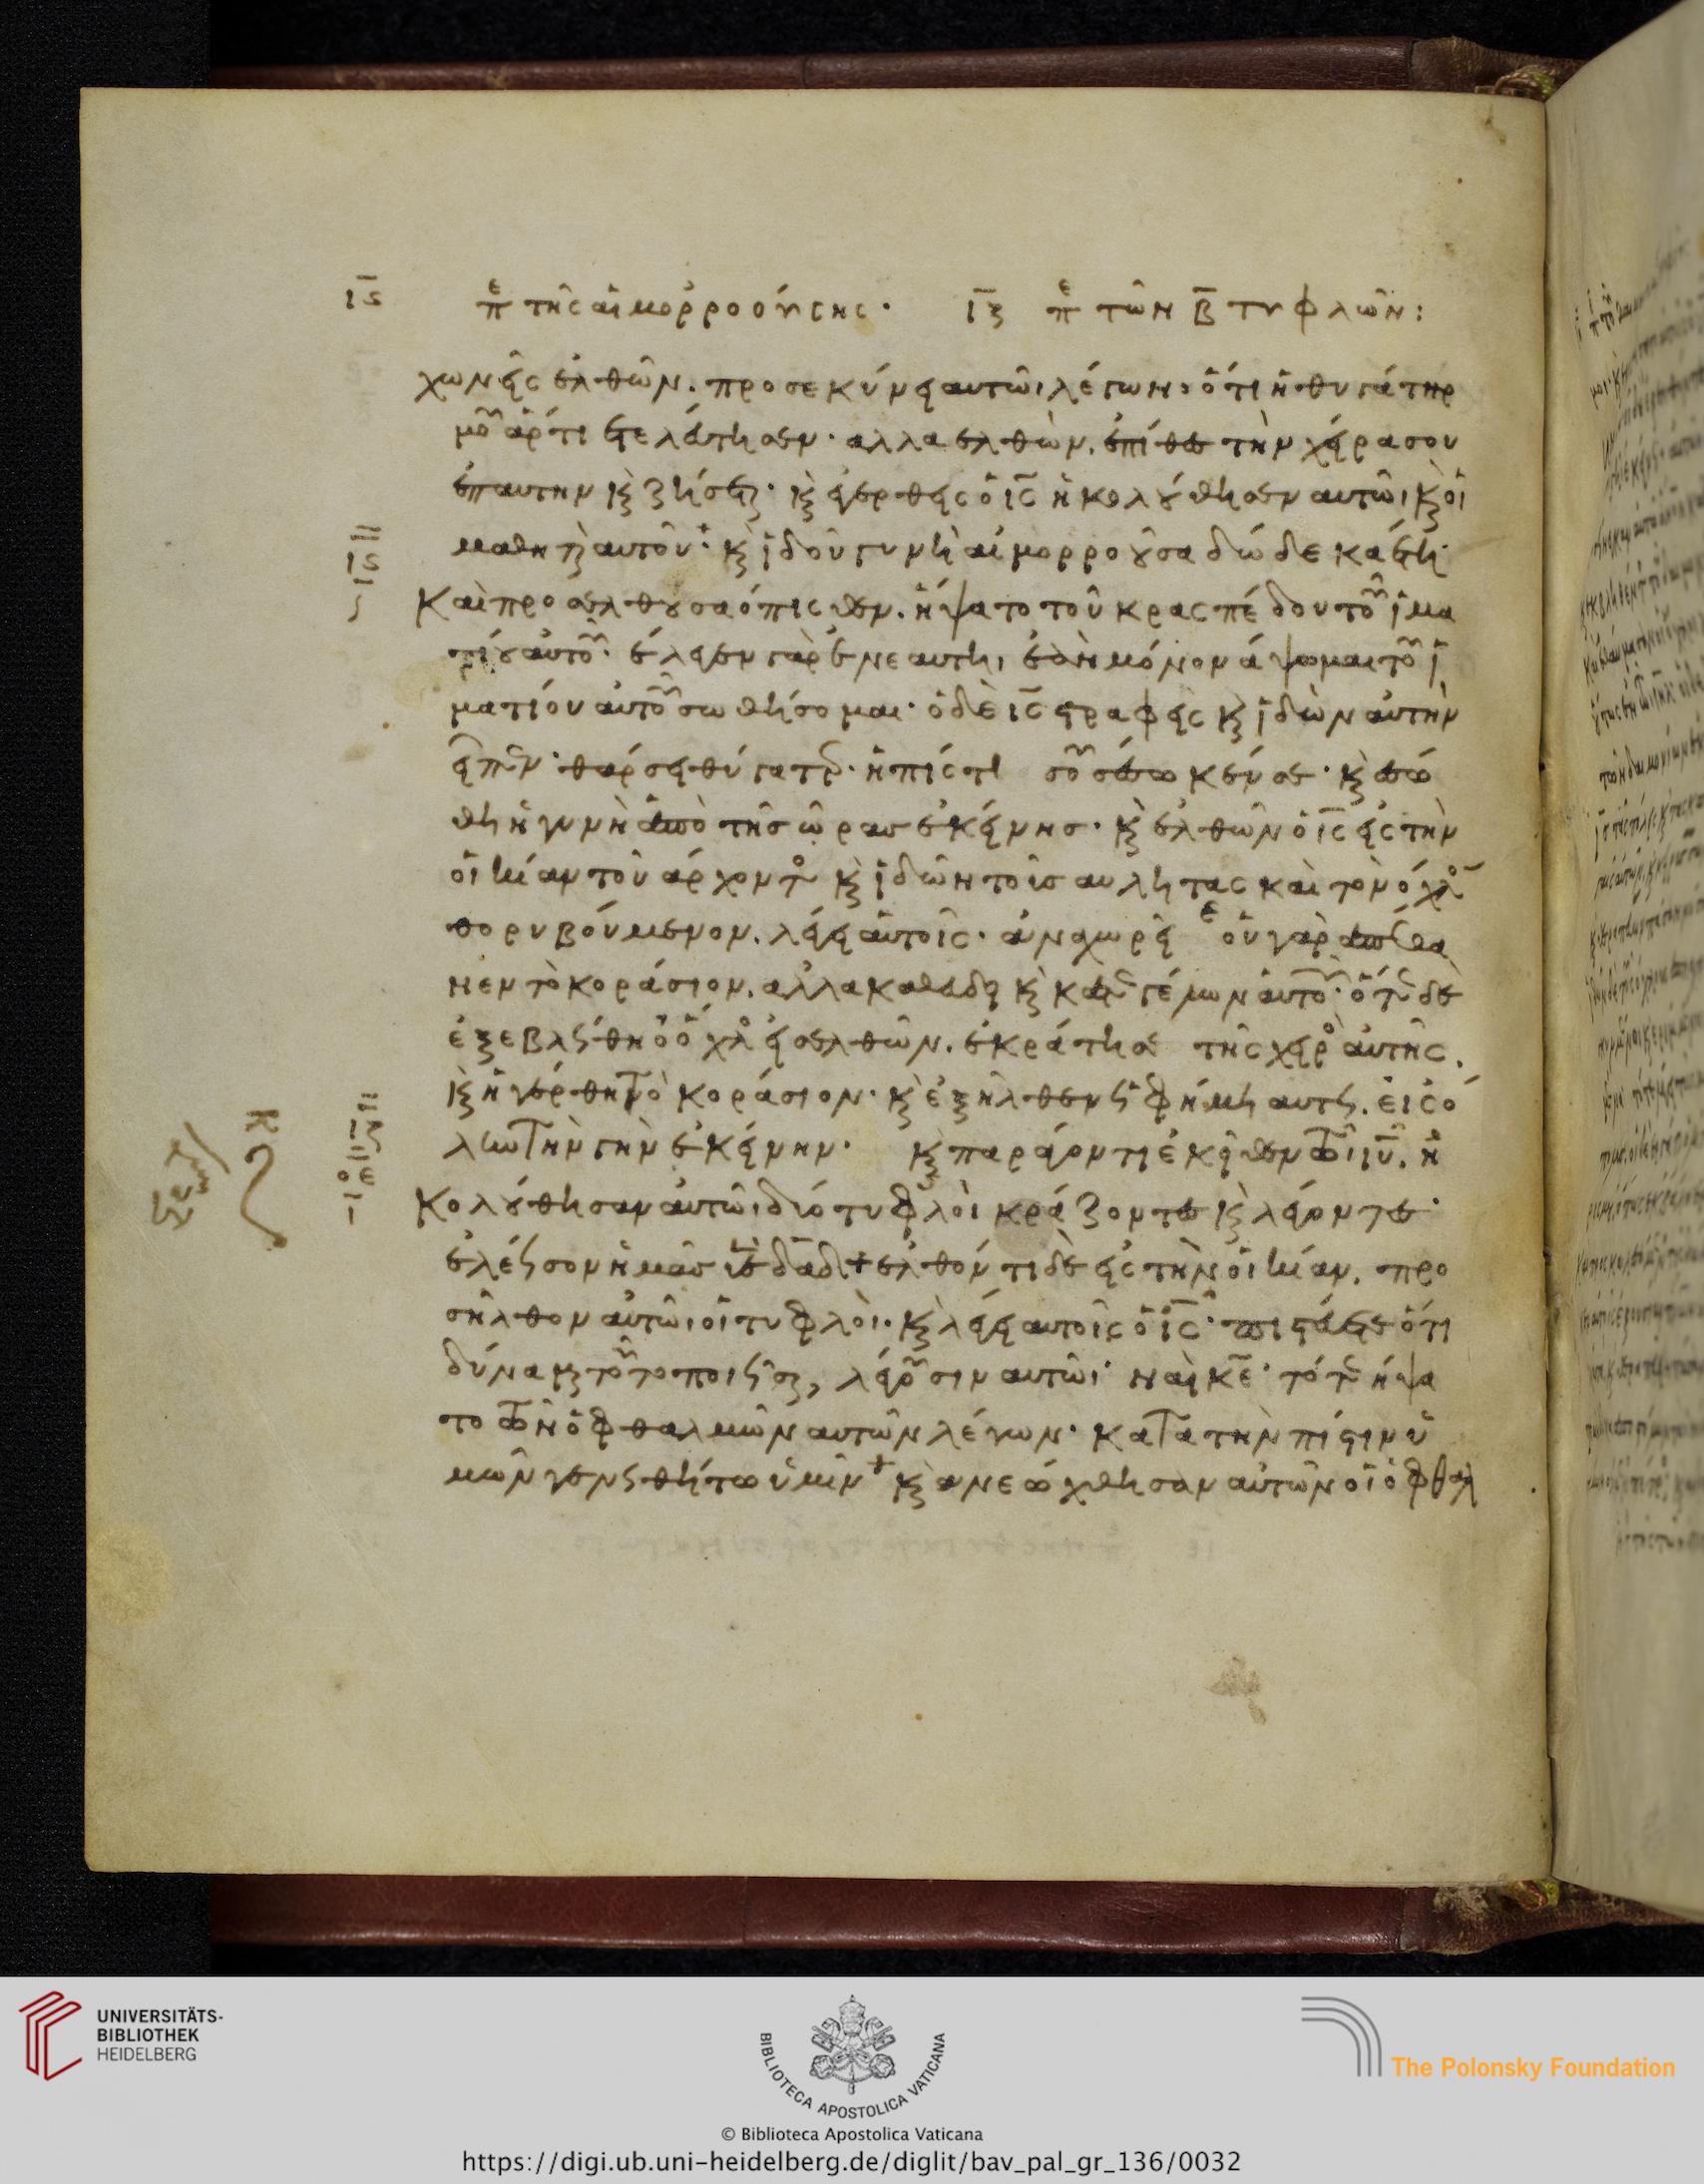 ιϛ πε τῆς αἱμορροούσης· ιζ πε τῶν β τυφλῶν:
χων εἰσελθὼν. προσεκύνει αυτῶι λέγων· ὅτι ἡ θυγάτηρ
μου ἄρτι ετελεύτησεν· αλλα ελθὼν. ἐπίθες τὴν χεῖρα σου
ἐπ αυτην κ ζήσεται· κ εγερθεὶς ὁ ις ἠκολούθησεν αυτῶι κ οἱ
ιϛ
μαθηταὶ αυτοῦ· κ ἰδοὺ γυνὴ αἱμορροοῦσα δώδεκα έτη·
Και προσελθουσα όπισθεν. ἥψατο τοῦ κρασπέδου τοῦ ἱμα
τίου αὐτοῦ· έλεγεν γαρ ἐν εαυτη, ἐὰν μόνον άψωμαι τοῦ ἱ
ματίου αὐτοῦ σωθήσομαι· ὁ δὲ ις στραφεὶς κ ἰδὼν αὐτὴν
εἶπεν· θάρσει θύγατερ· ἡ πίστις σοῦ σέσωκέν σε· κ εσώ
θη ἡ γυνὴ ἀπὸ τῆς ὥρας ἐκείνης· κ ελθὼν ὁ ις εἰς τὴν
οἰκίαν τοῦ άρχοντος κ ἰδὼν τοὺς αυλητας και τὸν όχλον
θορυβούμενον. λέγει αὐτοῖς· ἀναχωρεῖτε οὐ γὰρ ἀπέθα
νεν τὸ κοράσιον. αλλα καθεύδει κ κατεγέλων αὐτοῦ· ὅτε δὲ
ἐξεβλήθη ὁ όχλος εἰσελθὼν. ἐκράτησε τῆς χειρὸς αὐτῆς.
κ ἠγέρθη τὸ κοράσιον· κ ἐξῆλθεν ἡ φήμη αυτη. εἰς ὅ
ιζ
λην τὴν γῆν ἐκείνην· κ παράγοντι ἐκεῖθεν τῶι ιυ. ἠ
οε
Κολούθησαν αὐτῶι δύο τυφλοὶ κράζοντες κ λέγοντες·
ἐλέησον ἡμᾶς υἱὲ δαδ + ελθόντι δὲ εἰς τὴν οἰκίαν. προ
σῆλθον αὐτῶι οἱ τυφλοὶ· κ λέγει αυτοῖς ὁ ις· πιστεύετε ὅτι
δύναμαι τοῦτο ποιῆσαι, λέγουσιν αυτῶι· ναὶ κε· τότε ήψα
το τῶν ὀφθαλμῶν αυτῶν λέγων· κατα τὴν πίστιν ὑ
μῶν γενηθήτω ὑμῖν + κ ανεώχθησαν αὐτῶν οἱ ὀφθαλ
UNIVERSITÄTS-
BIBLIOTHEK
HEIDELBERG
BIBLIOTECA APOSTOLICA VATICANA
The Polonsky Foundation
© Biblioteca Apostolica Vaticana
https://digi.ub.uni-heidelberg.de/diglit/bav_pal_gr_136/0032